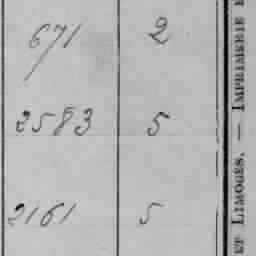 671 2
2583 5
2161 5
ET LIMOGES. — IMPRIMERIE